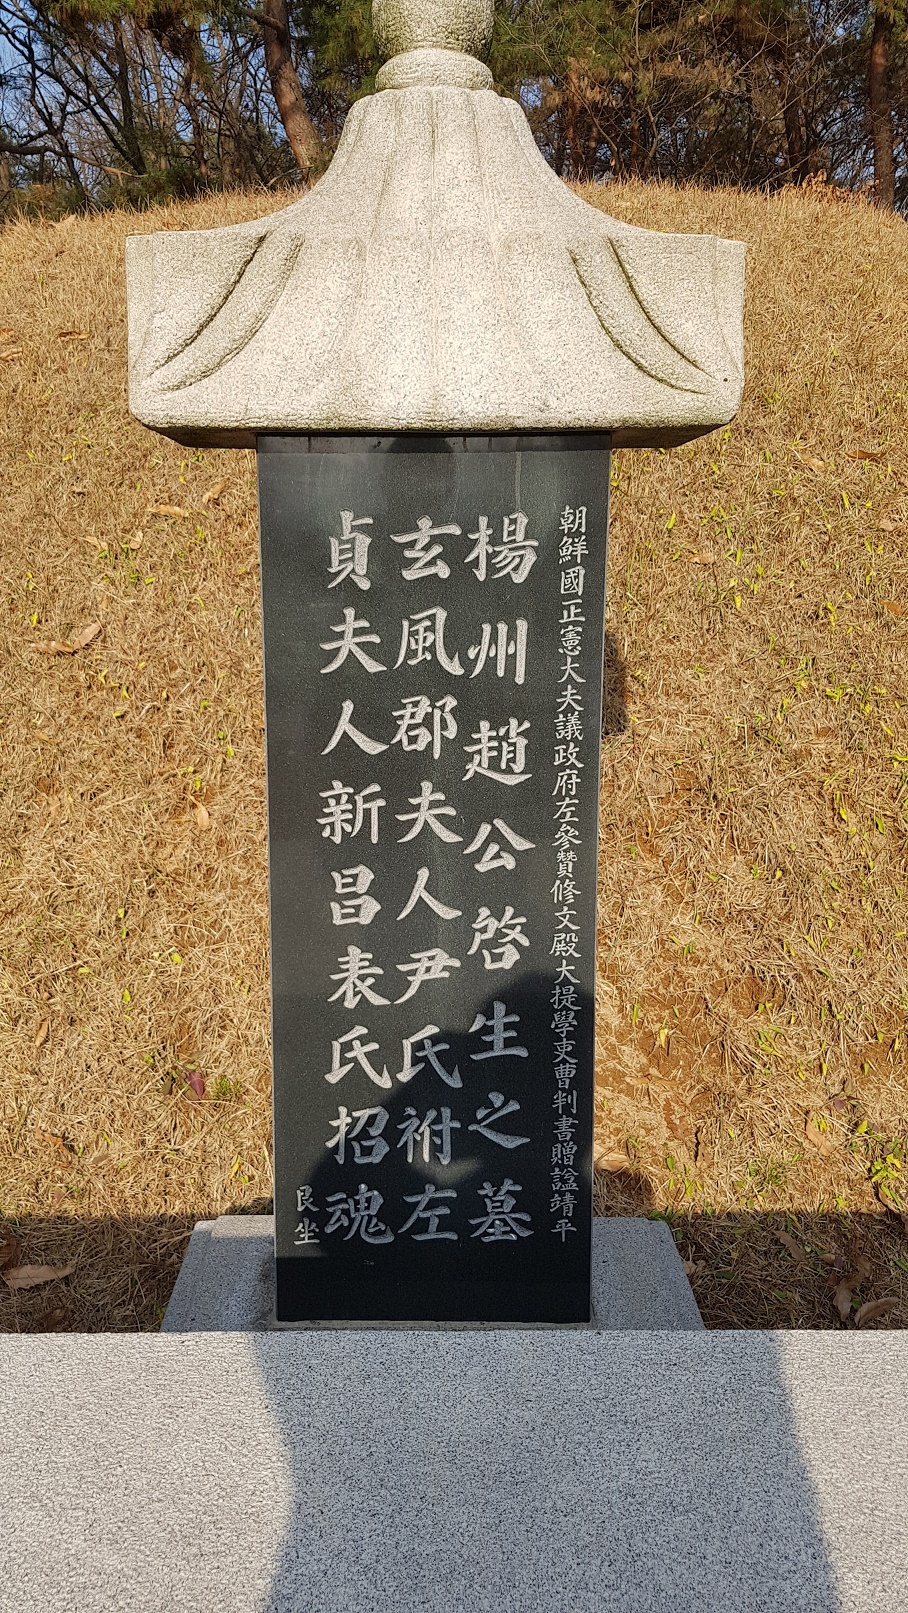 朝鮮國正憲大夫議政府左參贊修文殿大提學吏曹判書贈諡靖平
楊州趙公啓生之墓
玄風郡夫人尹氏祔左
貞夫人新昌表氏招魂
艮坐